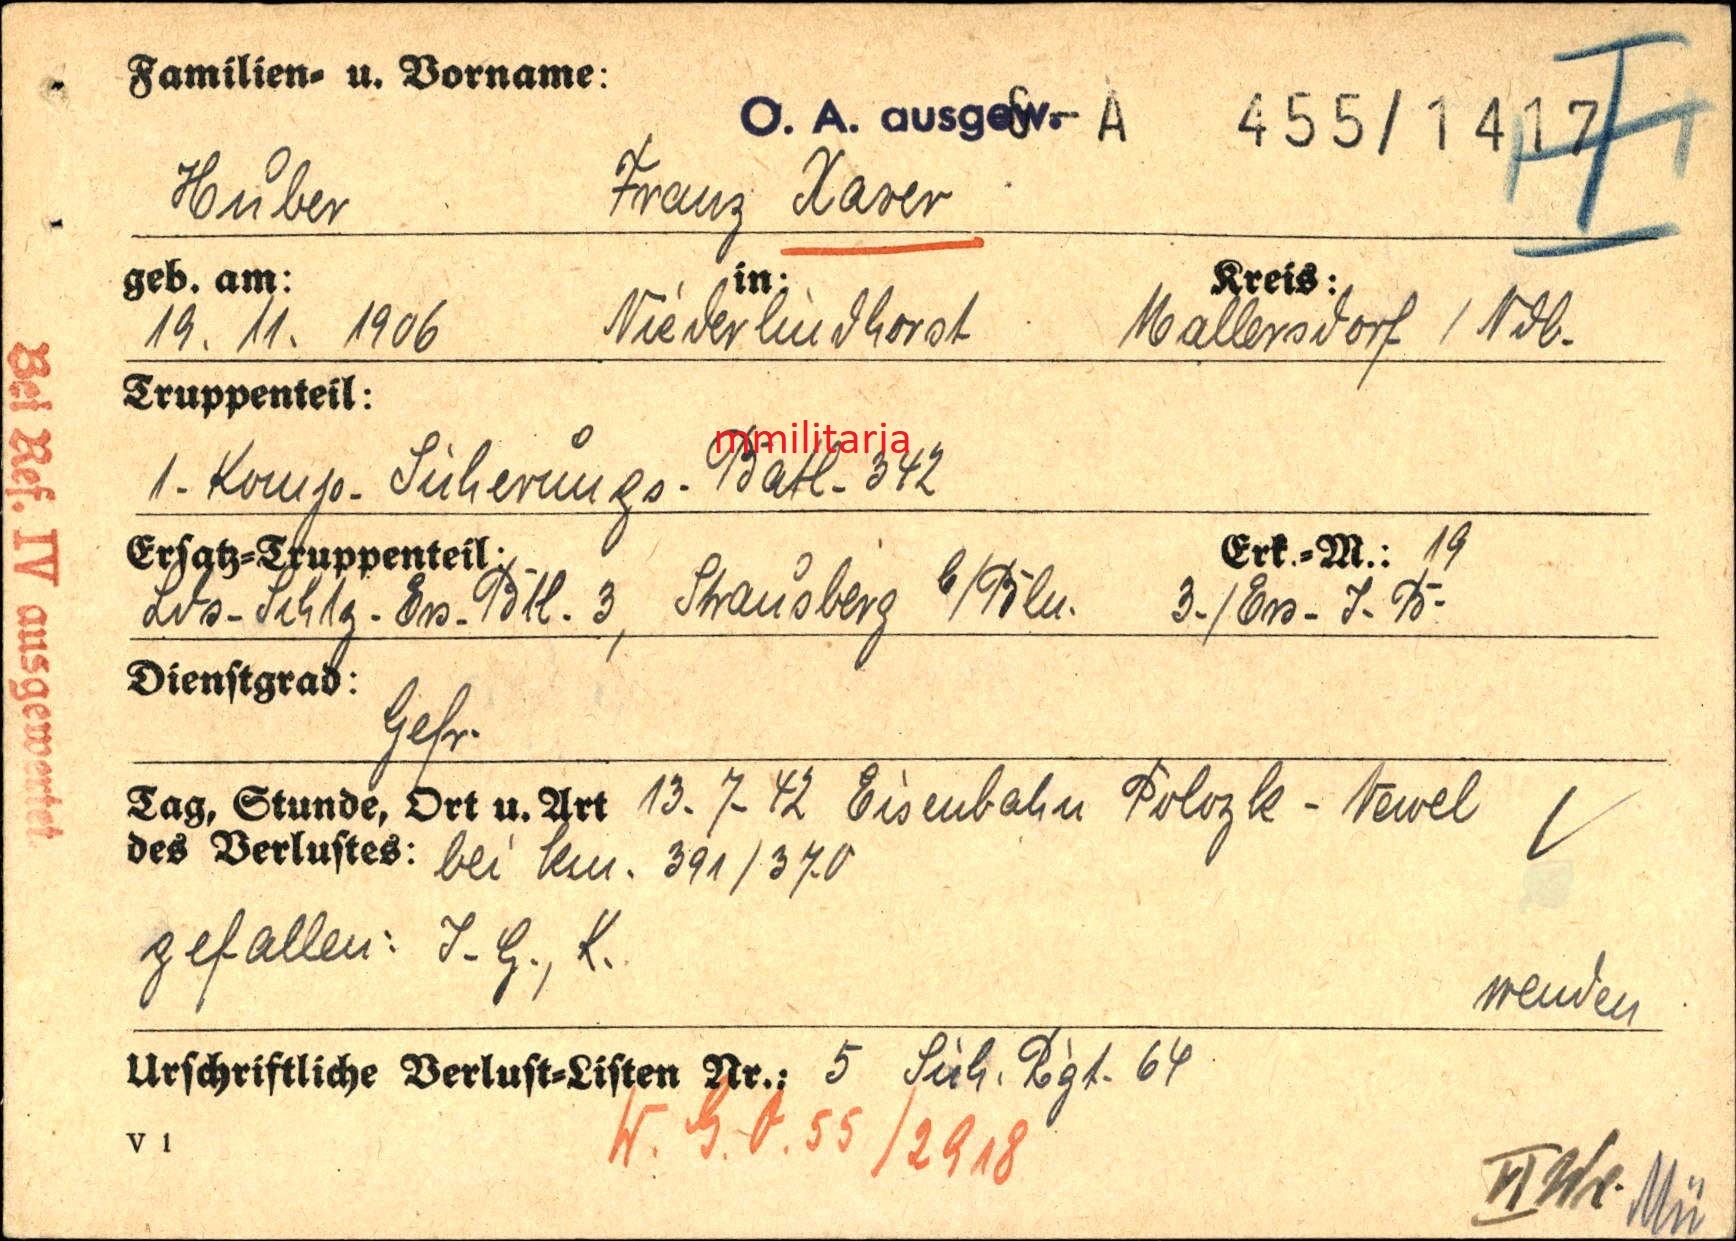 Familien- u. Vorname:
O. A. ausgew. S - A 455/1417
Huber Franz Xaver
geb. am: in: Kreis:
19. 11. 1906 Niederlindhorst Mallersdorf / Ndb.
Truppenteil:
mmilitarja
1. Komp. Sicherungs-Batl. 342
Ersatz-Truppenteil: Erk.-M.: 19
Lds-Schtz-Ers-Btl. 3, Strausberg b/Bln. 3./Ers-I.B.
Dienstgrad:
Gefr.
Tag, Stunde, Ort u. Art 13.7.42 Eisenbahn Polozk - Newel
des Verlustes: bei km. 391/370
gefallen: I.G., K.
wenden
Urschriftliche Verlust-Listen Nr.: 5 Sich. Rgt. 64
W. G. O. 55/2918
V 1
VI
Mü
Bei Ref. IV ausgewertet